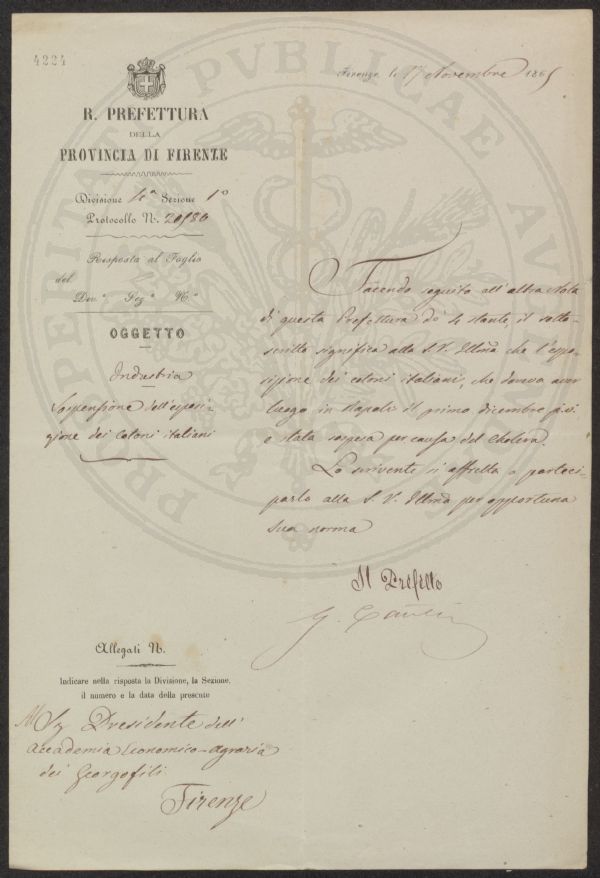 4224
Firenze, li 17 Novembre 1865
R. PREFETTURA
DELLA
PROVINCIA DI FIRENZE
Divisione 4a Sezione 1o
Protocollo N. 20580
Risposta al Foglio
del
Div.e Sez.e N.o
OGGETTO
Industria
Sospensione dell'esposi-
zione dei cotoni italiani
Facendo seguito all'altra Nota
di questa Prefettura de' 4 stante, il sotto-
scritto significa alla S. V. Illma che l'espo-
sizione dei cotoni italiani, che doveva aver
luogo in Napoli il primo dicembre p.v.
è stata sospesa per causa del Cholera.
Lo scrivente si affretta a parteci-
parlo alla S. V. Illma per opportuna
sua norma
Il Prefetto
G. Cantelli
Allegati N.
Indicare nella risposta la Divisione, la Sezione,
il numero e la data della presente
Al Sig Presidente dell'
Accademia Economico-agraria
dei Georgofili
Firenze
PROSPERITATI PVBLICAE AV